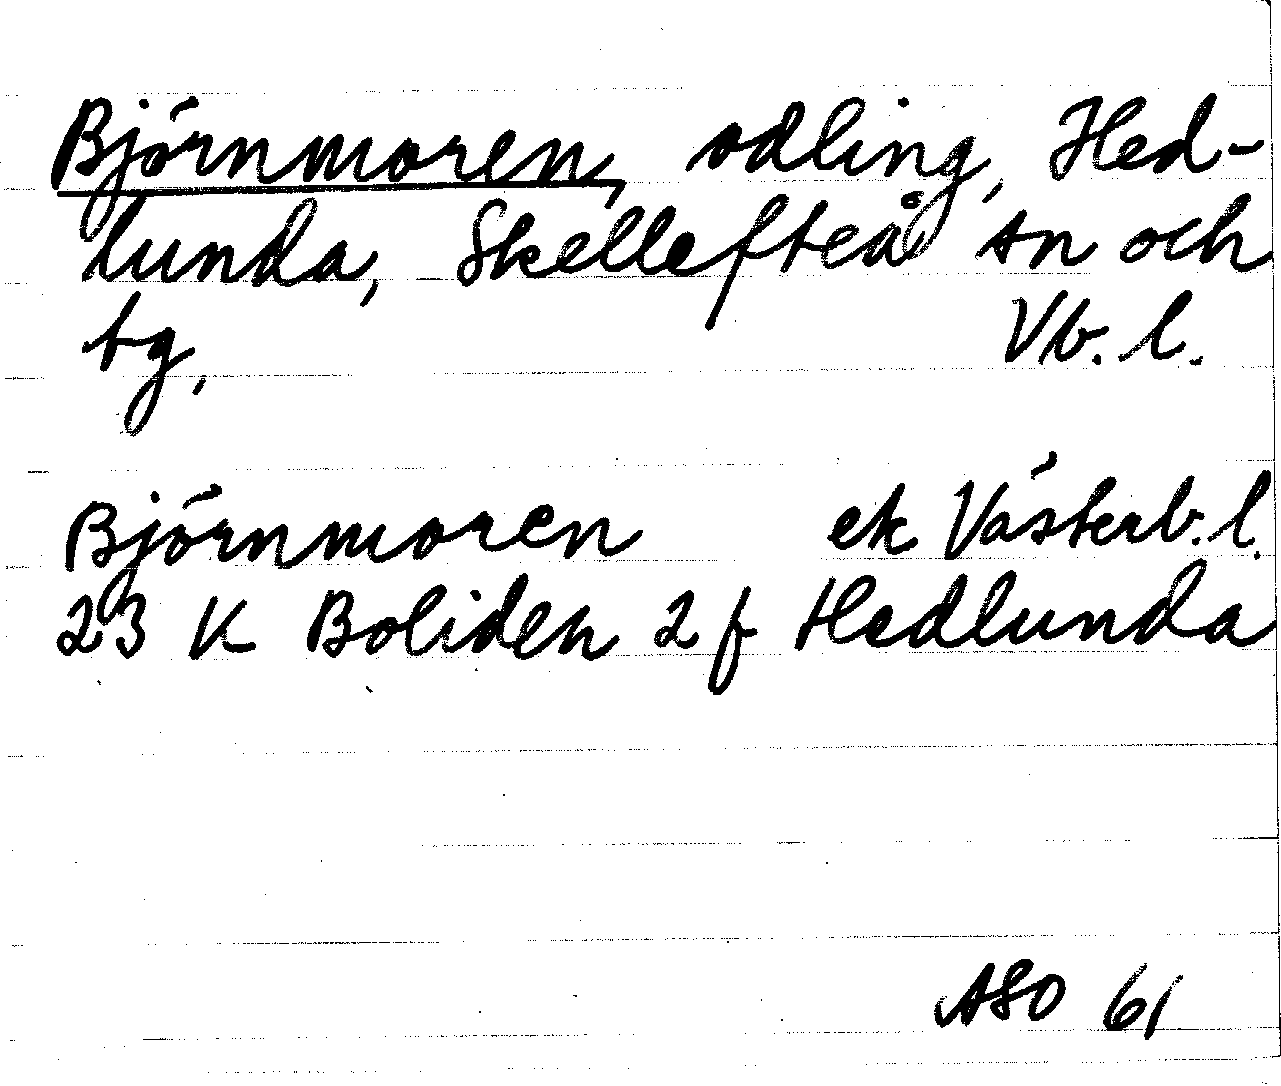 Björnmoren, odling, Hed-
lunda, Skellefteå sn och
tg, Vb. l.
Björnmoren ek Västerb. l.
23 K Boliden 2 f Hedlunda
ASO 61